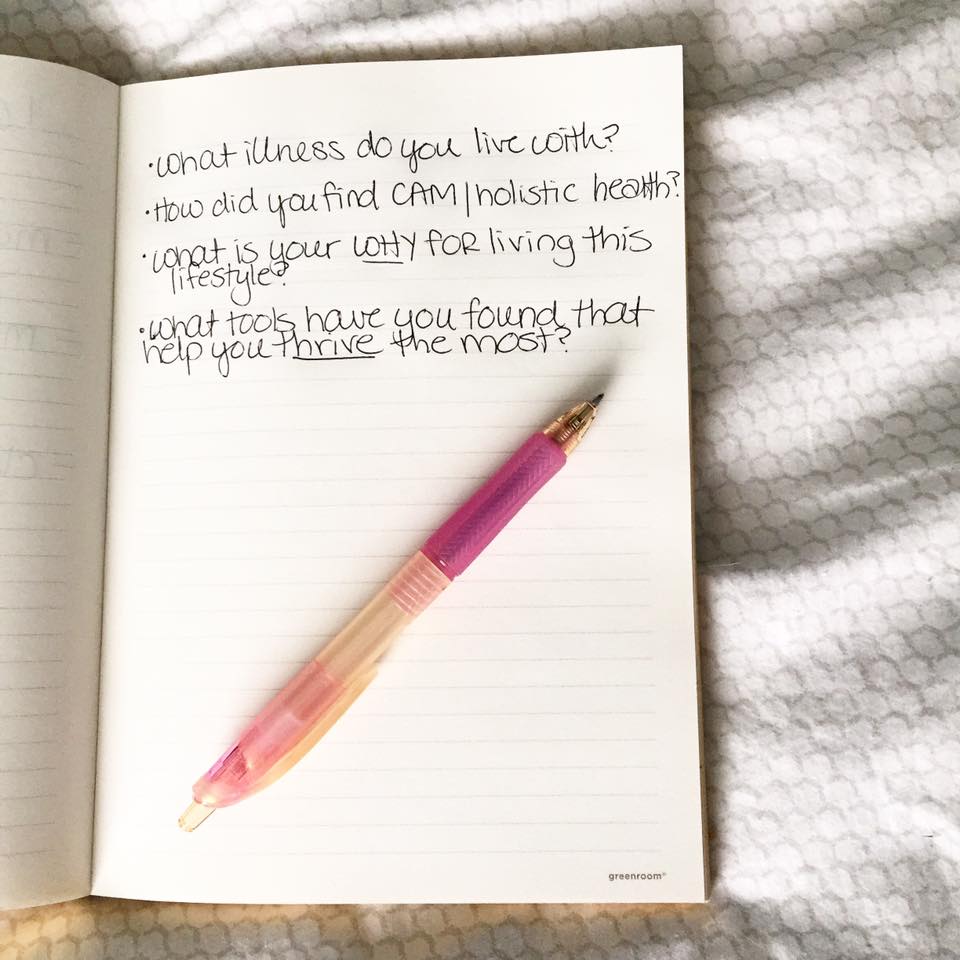 ·What illness do you live with?
·How did you find CAM|holistic health?
·What is your WHY for living this
lifestyle?
·What tools have you found that
help you thrive the most?
greenroom®